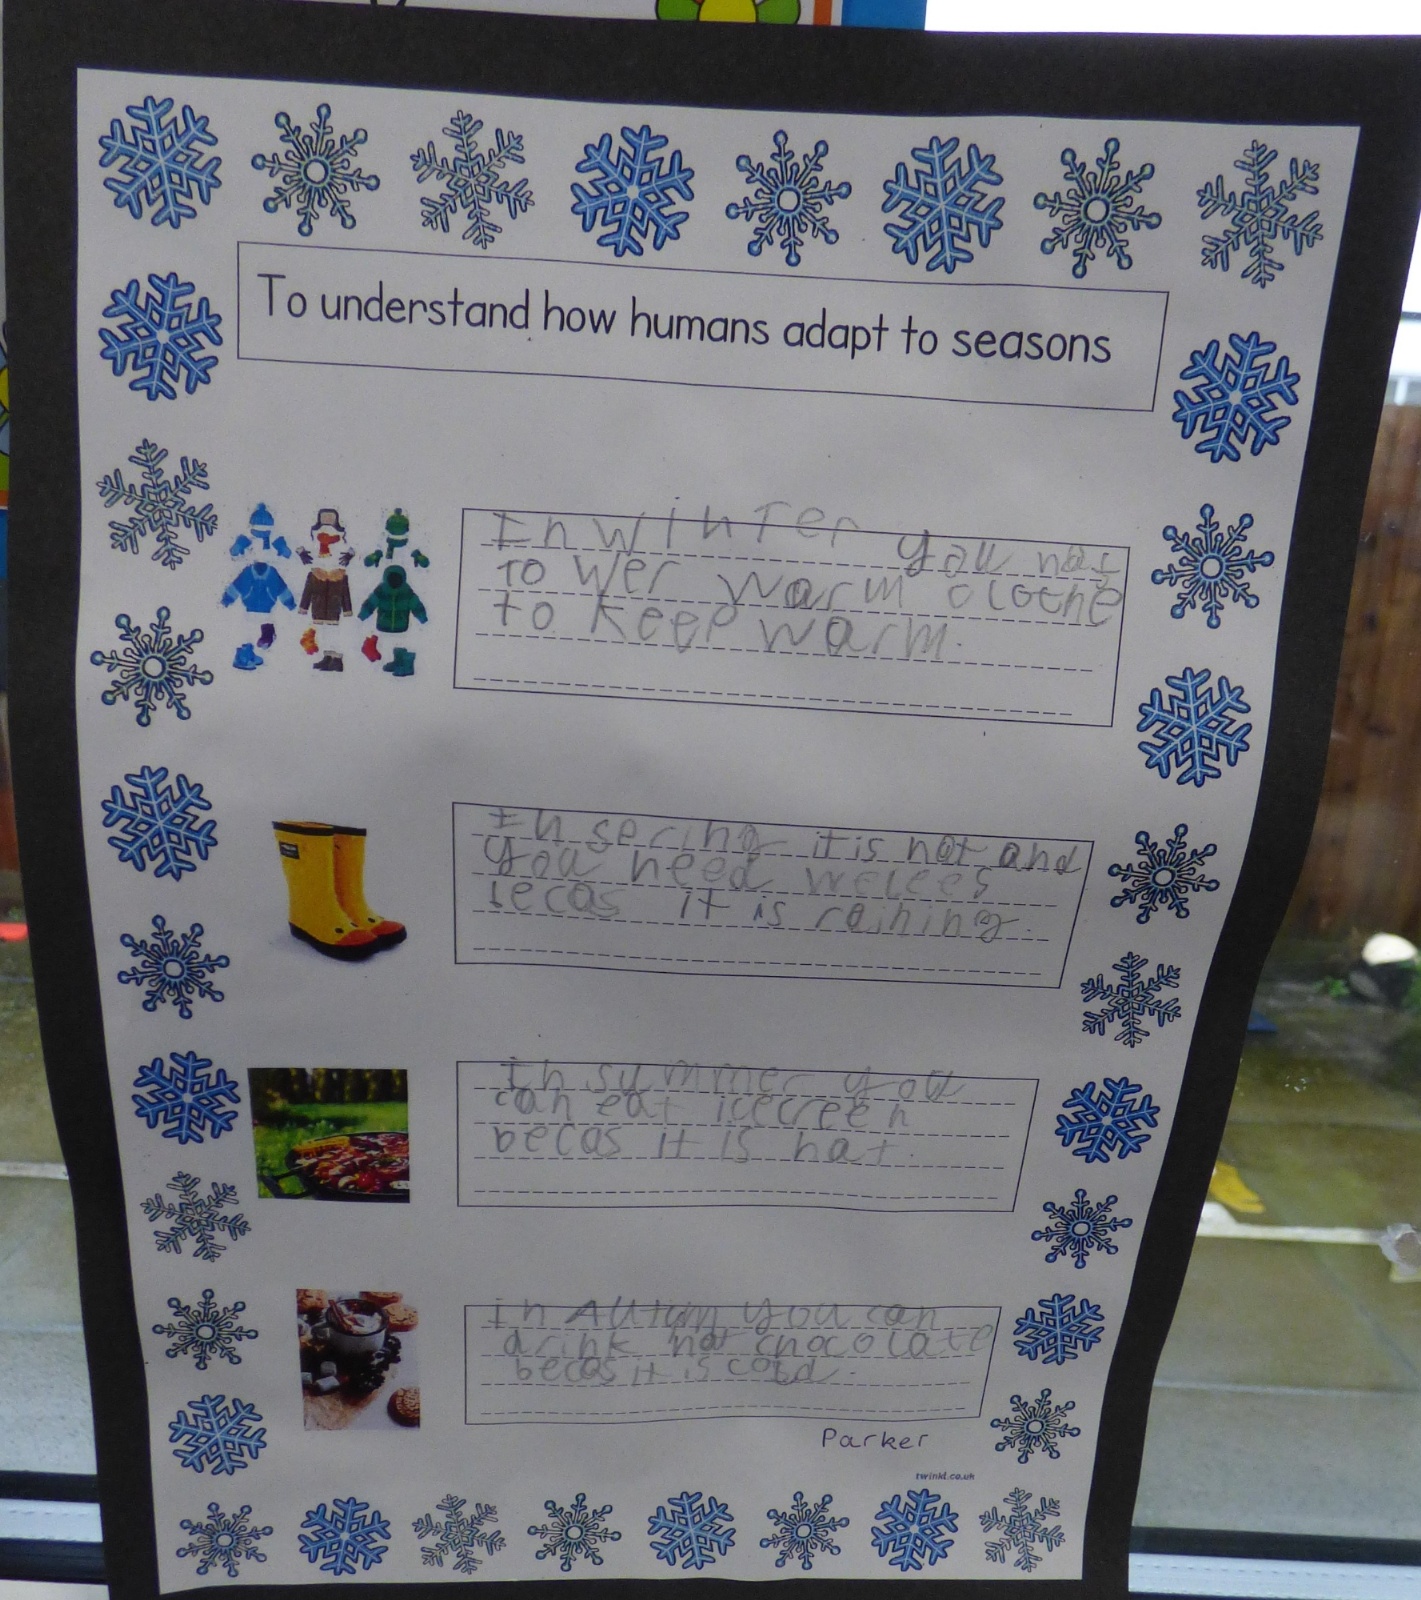 To understand how humans adapt to seasons
In winter you has
to wer warm clothe
to keep warm.
In sering it is hot and
you need welees
becas it is raining.
In summer you
can eat icecreen
becas it is hat.
in Autum you can
drink hot chocolate
becas it is cold.
Parker
twinkl.co.uk